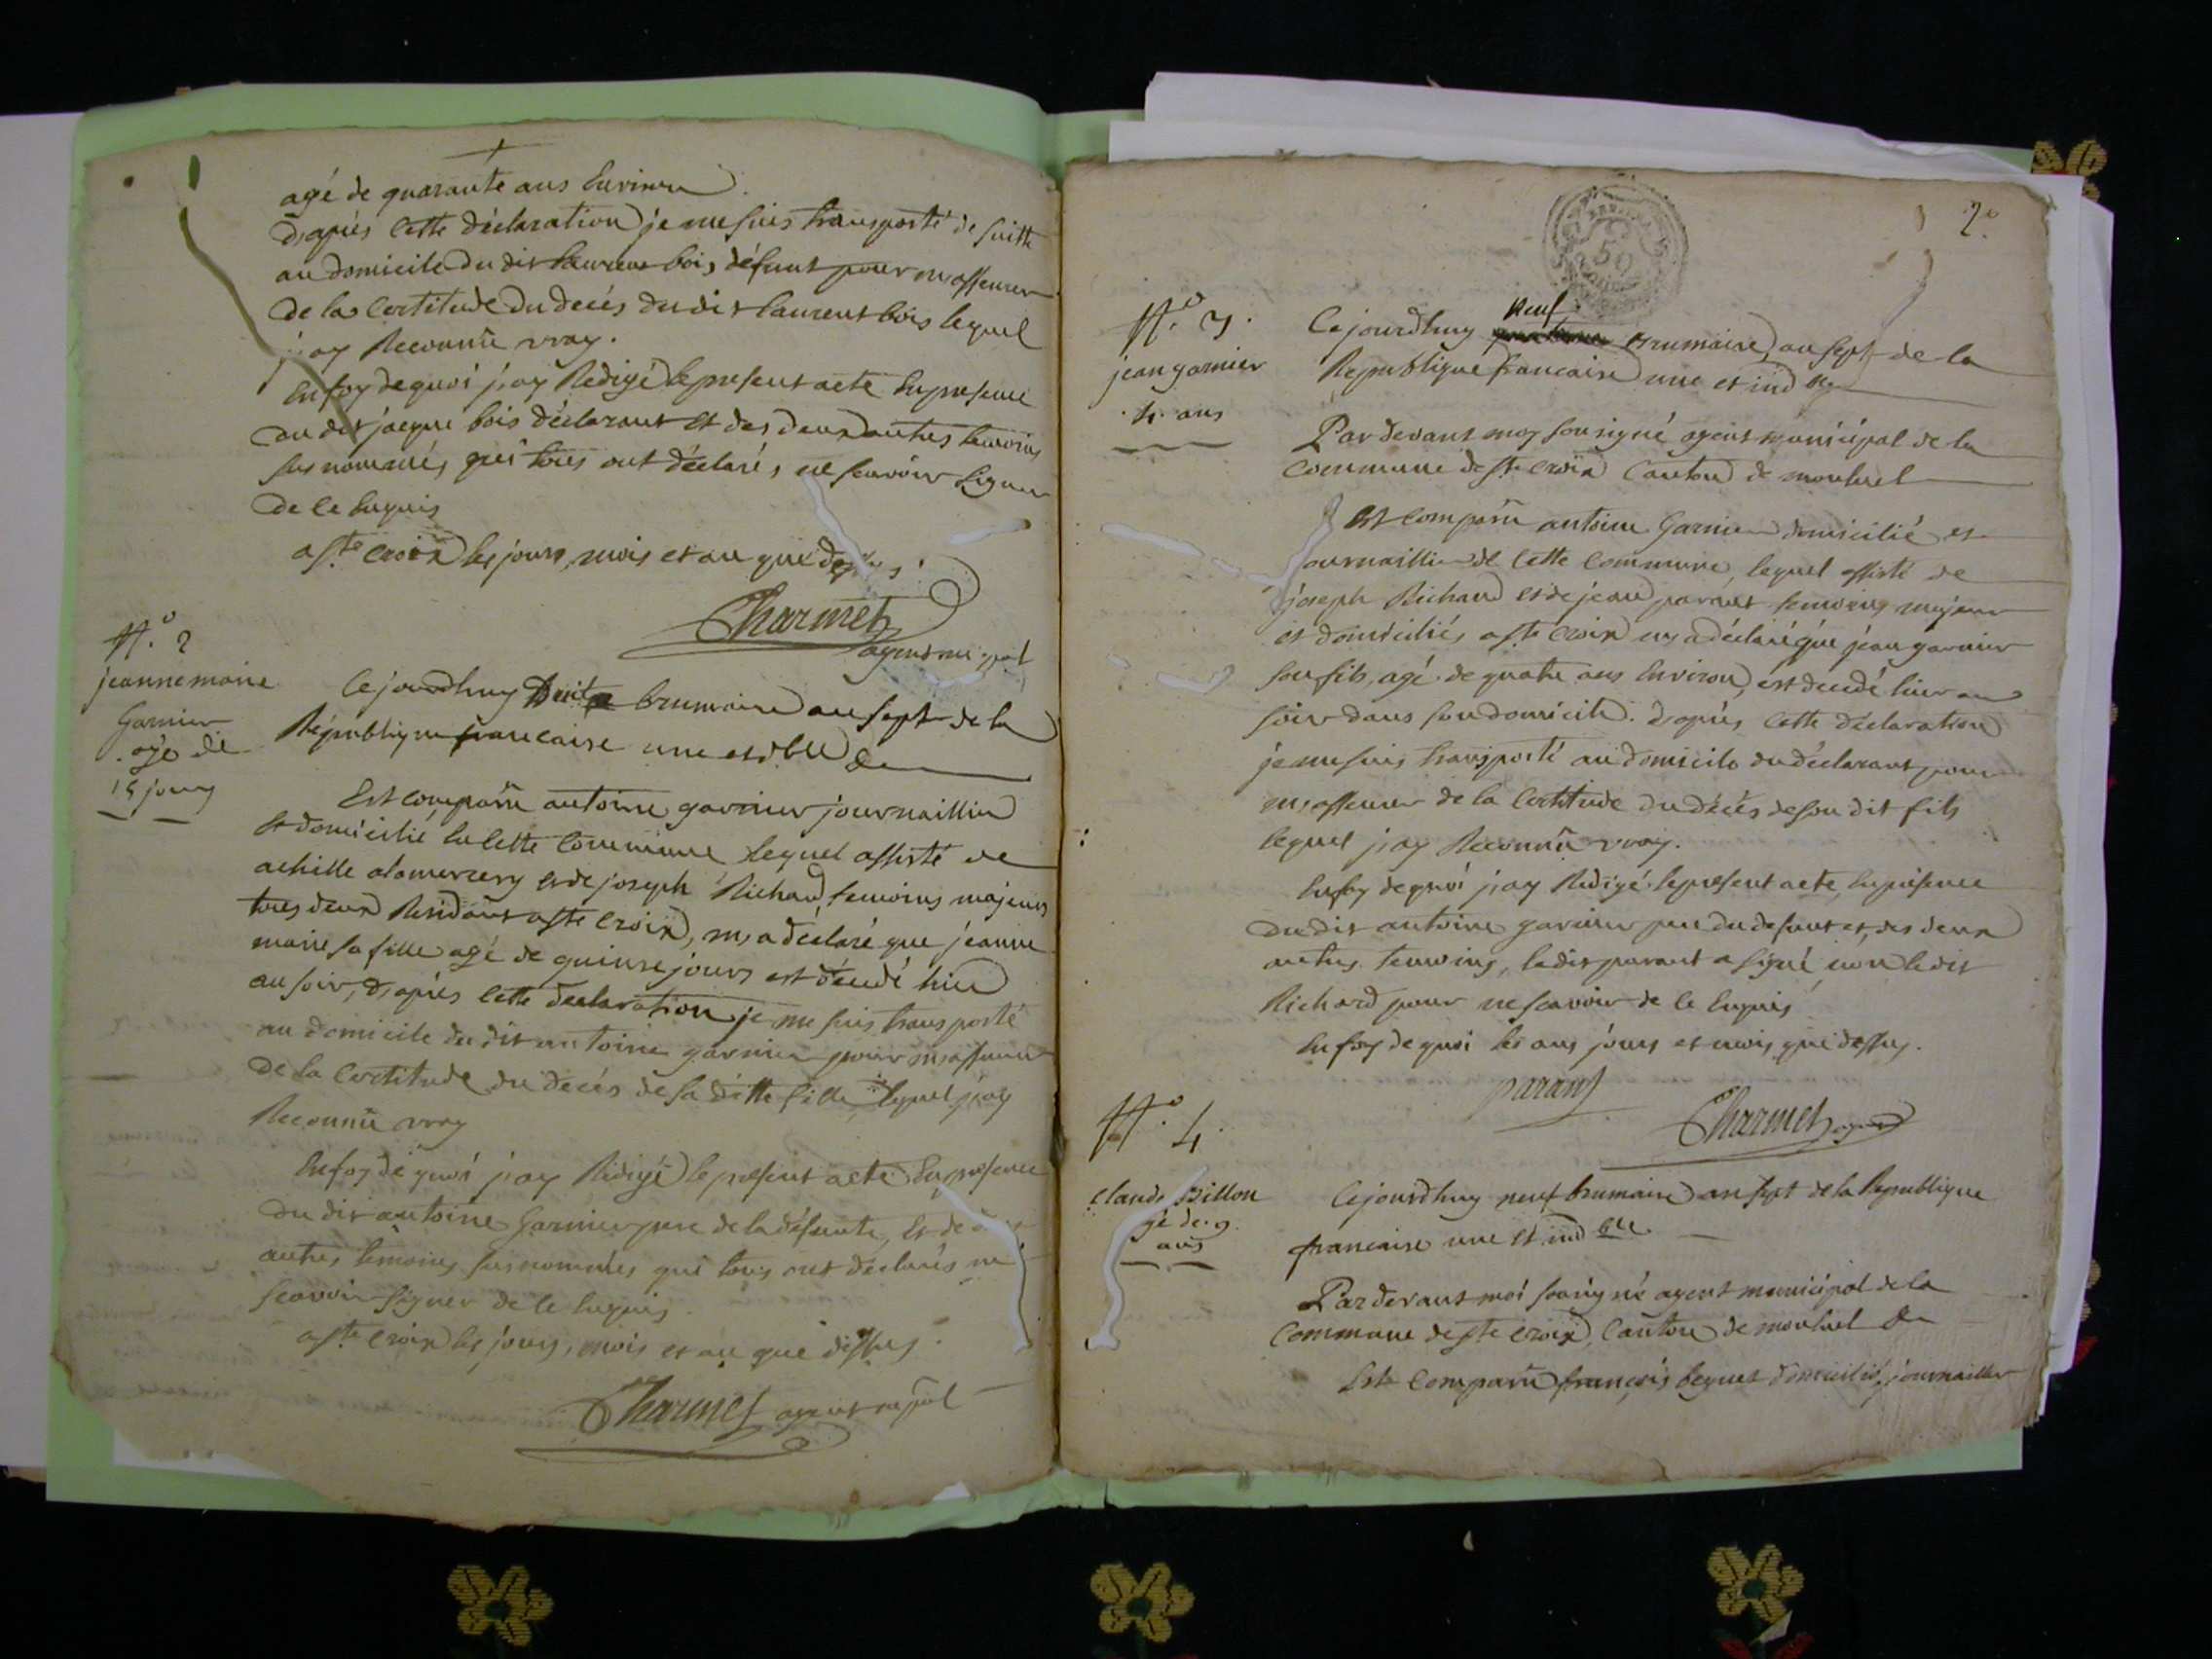 agé de quarante ans Environ
d'après Cette déclaration je me suis transporté de suitte
au domicile du dit Laurent bois défunt pour m'assurer
de la Certitude du décés du dit laurent bois lequel
j'ay Reconnû vray.
En foy de quoi j'ay Rédigé le present acte En presence
du dit jacque bois déclarant et des deux autres temoins
sus nommés, qui tous ont déclarés ne scavoir Signer
de ce Enquis
a Ste. Croix les jours, mois et an que dessus
Charmet
agent mu.pal
N.o 2
jeanne marie
Garnier
agé de
15 jours
Cejourdhuy huit brumaire an sept de la
République francaise une et d.ble
Est comparû antoine garnier journaillier
et domicilié En Cette Commune lequel assisté de
achille alamercery et de joseph Richard, temoins majeurs
tous deux Residants a Ste Croix, m'a déclaré que jeanne
marie sa fille agé de quinse jours est décedé hier
au soir, d'après Cette declaration je me suis transporté
au domicile du dit antoine garnier pour m'assurer
de la Certitude du decés de sa ditte fille lequel j'ay
Reconnû vray
En foy de quoi j'ay Rédigé le present acte En presence
du dit antoine Garnier pere de la défunte, Et de
autres temoins sus nommés qui tous ont declarés ne
scavoir signer de ce Enquis.
a Ste. Croix les jours, mois et an que dessus.
Charmet agent m.pal
2.o
50
N.o 3.
jean garnier
4. ans
Cejourdhuy neuf brumaire, an sept de la
Republique francaise une et ind
Par devant moy sousigné agent municipal de la
Commune de Ste. Croix Canton de montluel
Est Comparû antoine Garnier domicilié et
journaillier de Cette Commune, lequel assisté de
joseph Richard et de jean parant temoins majeur
et domiciliés a Ste Croix m'a déclaré que jean garnier
son fils, agé de quatre ans Environ, est decedé hier au
soir dans son domicile. d'après Cette déclaration
je me suis transporté au domicile du déclarant pour
m'assurer de la Certitude du décès de son dit fils
lequel j'ay Reconnû vray.
En foy de quoi j'ay Rédigé le present acte, En présence
du dit antoine garnier pere du defunt et des deux
autres temoins, le dit parant a signé, non le dit
Richard pour ne scavoir de ce Enquis
En foy de quoi les ans jours et mois que dessus.
parant
Charmet agent
N.o 4.
Claude Billon
gé de 9.
ans
Cejourdhuy neuf brumaire an sept de la Republique
francaise une et ind ble
Par devant moi sousigné agent municipal de la
Commune de Ste Croix, Canton de montluel
Est Comparû françois beguet domicilié, journaillier